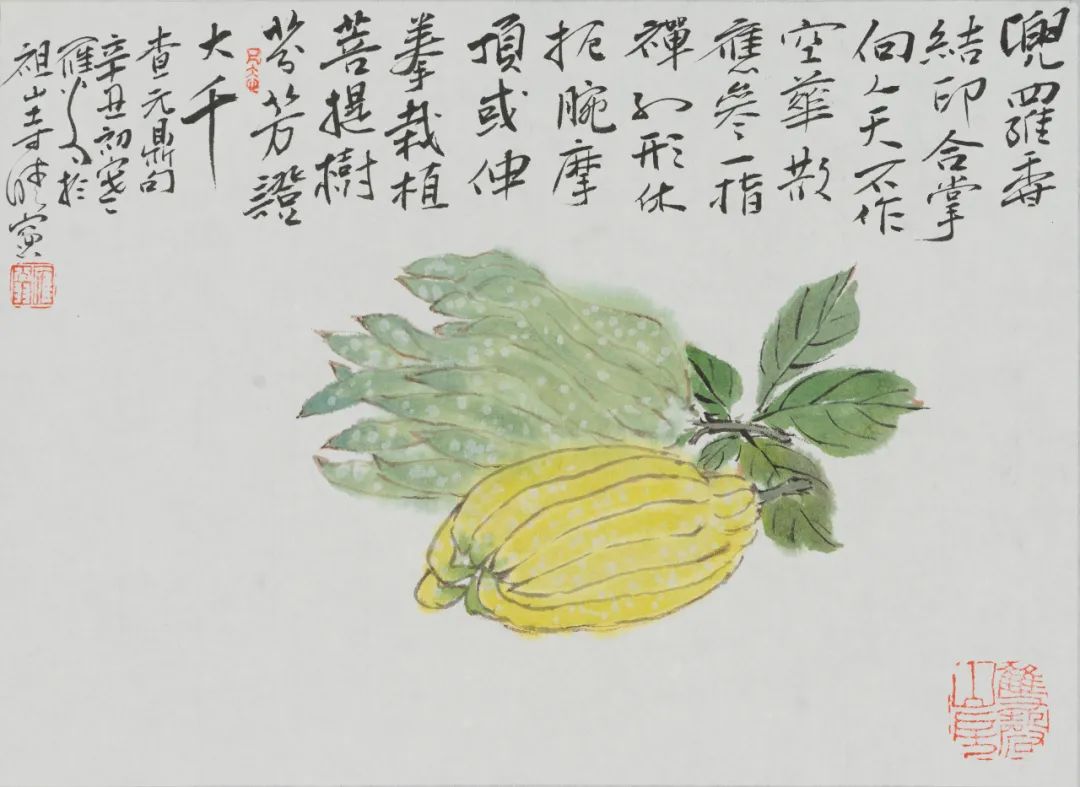 兜羅香
結印合掌
向人天不作
空華散
應參一指
禪幻形休
扼腕摩
頂或伸
拳栽植
菩提樹
芬芳證
大千
查元鼎句
辛丑初寒
羅於
祖山寺